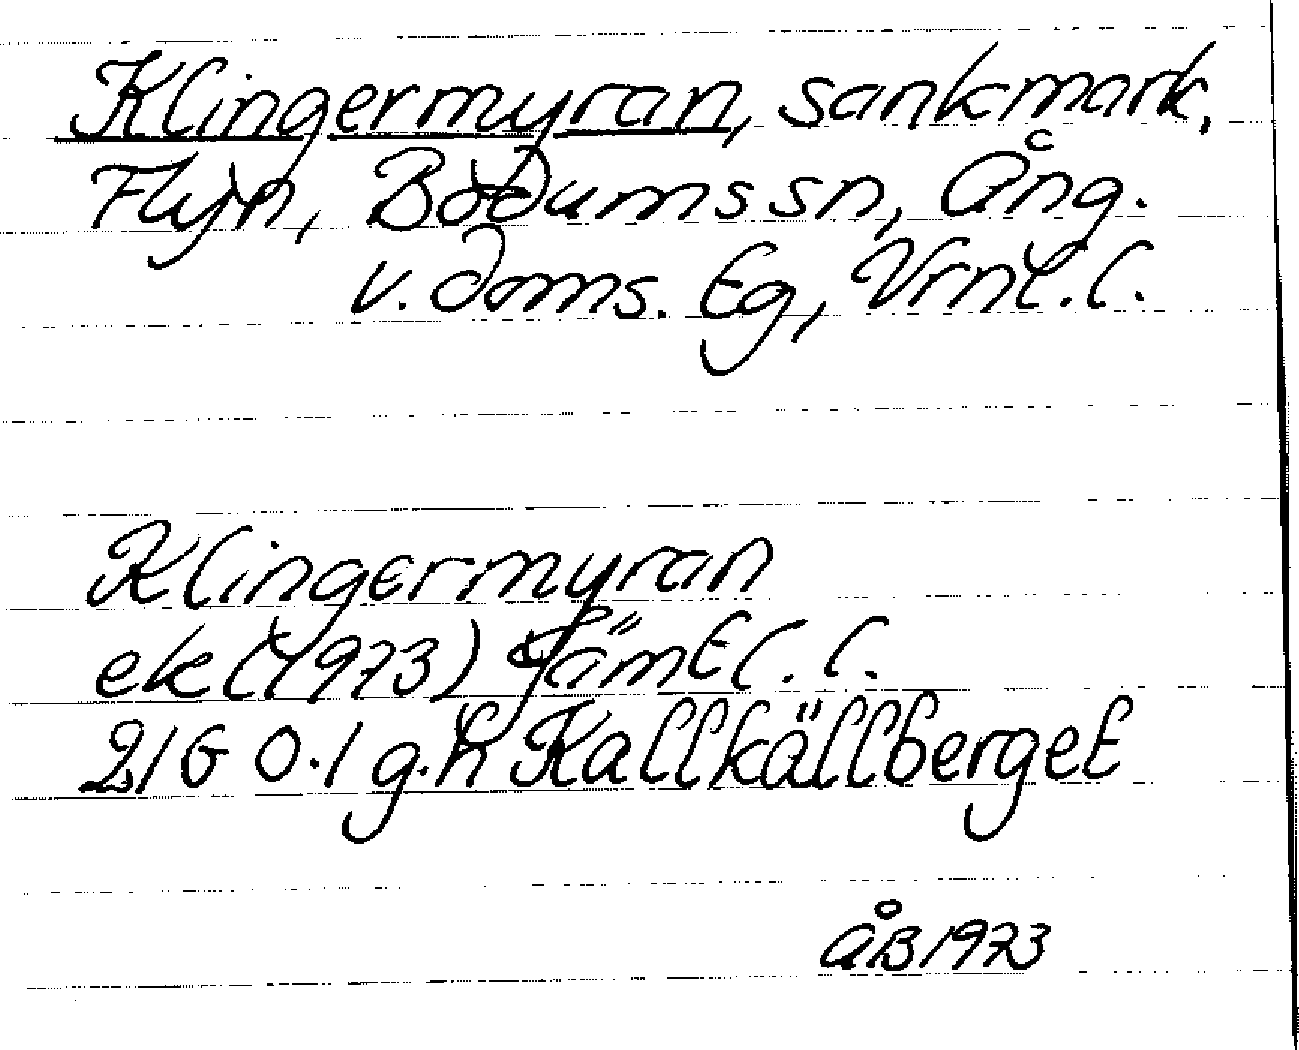 Klingermyran, sankmark,
Flyn, Bodums sn, Ång.
v. doms. Eg, Vrnl. l.
Klingermyran
ek (1973) Jämtl. l.
21 G 0.1 g.h Kallkällberget
ÅB 1973